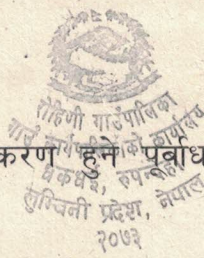 रोहिणी गाउँपालिका
गाउँ कार्यपालिकाको कार्यालय
करण हुने पूर्वाध
धकधई, रुपन्देही
लुम्बिनी प्रदेश, नेपाल
२०७३